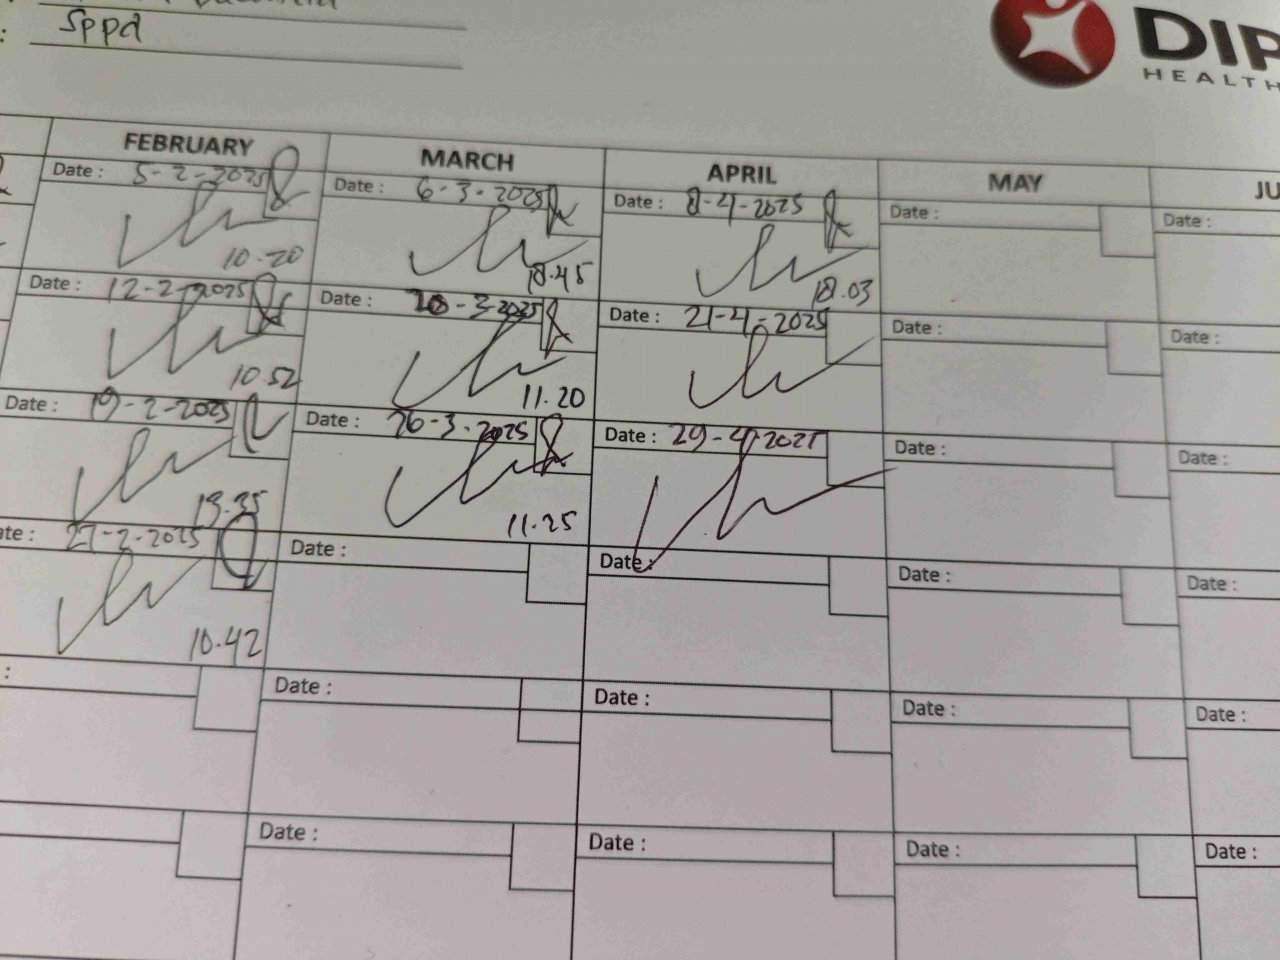 : Sppd
DIP
HEALTH
FEBRUARY MARCH APRIL MAY JU
Date : 5-2-2025 Date : 6-3-2025 Date : 8-4-2025 Date : Date :
10.20 18.45 18.03
Date : 12-2-2025 Date : 20-3-2025 Date : 21-4-2025 Date : Date :
10.52 11.20
Date : 19-2-2025 Date : 26-3-2025 Date : 29-4-2025 Date : Date :
19.35 11.25
ate : 27-2-2025 Date : Date : Date : Date :
10.42
: Date : Date : Date : Date :
Date : Date : Date : Date :